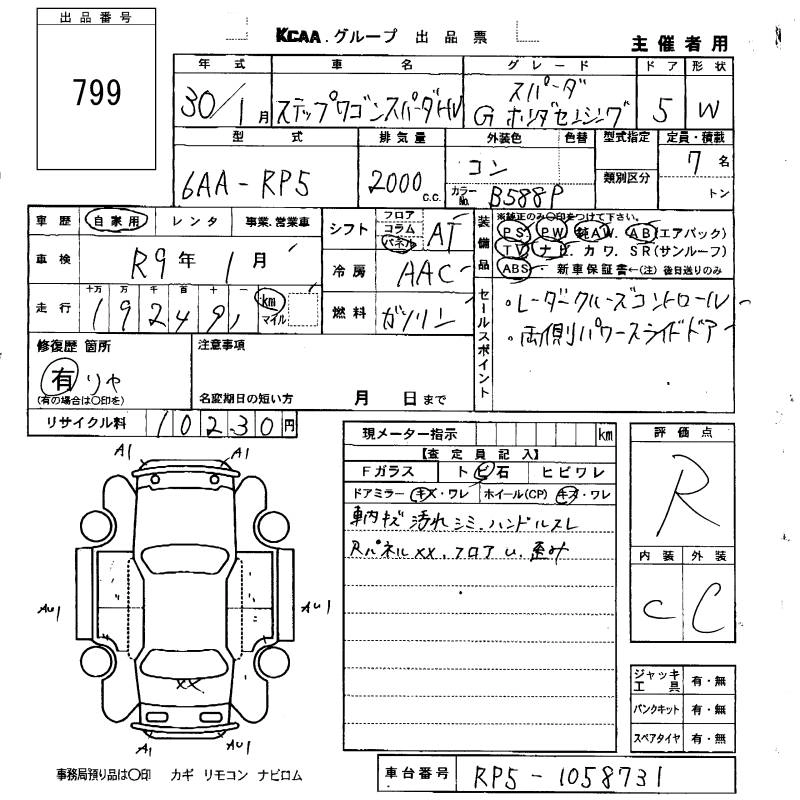 出品番号
799
KCAA.グループ 出品票
主催者用
年式 車名 グレード ドア 形状
30/1月 ステップワゴンスパーダHV スパーダ G ホンダセンシング 5 W
型式 排気量 外装色 色替 型式指定 定員・積載
6AA-RP5 2000 c.c. コン 7名
カラーNo. B588P 類別区分 トン
車歴 自家用 レンタ 事業.営業車
シフト フロア コラム パネル AT
車検 R9年 1月
冷房 AAC
走行 十万 万 千 百 十 一
192491 km マイル
燃料 ガソリン
装備品 ※純正のみ〇印をつけて下さい。
PS. PW. 純AW. AB(エアバック)
TV. ナビ. カワ. SR(サンルーフ)
ABS. 新車保証書←(注)後日送りのみ
セールスポイント
・レーダークルーズコントロール
・両側パワースライドドア
修復歴 箇所
有 リヤ
(有の場合は〇印を)
注意事項
名変期日の短い方 月 日まで
リサイクル料 10230円
現メーター指示 km
【査定員記入】
Fガラス トビ石 ヒビワレ
ドアミラー キズ・ワレ ホイール(CP) キズ・ワレ
車内キズ 汚れ シミ. ハンドルスレ
Rパネルxx. フロアU. 歪み
評価点
R
内装 外装
C C
A1 A1
AU1 AU1
XX
A1 AU1
ジャッキ工具 有・無
パンクキット 有・無
スペアタイヤ 有・無
事務局預り品は〇印 カギ リモコン ナビロム
車台番号 RP5-1058731